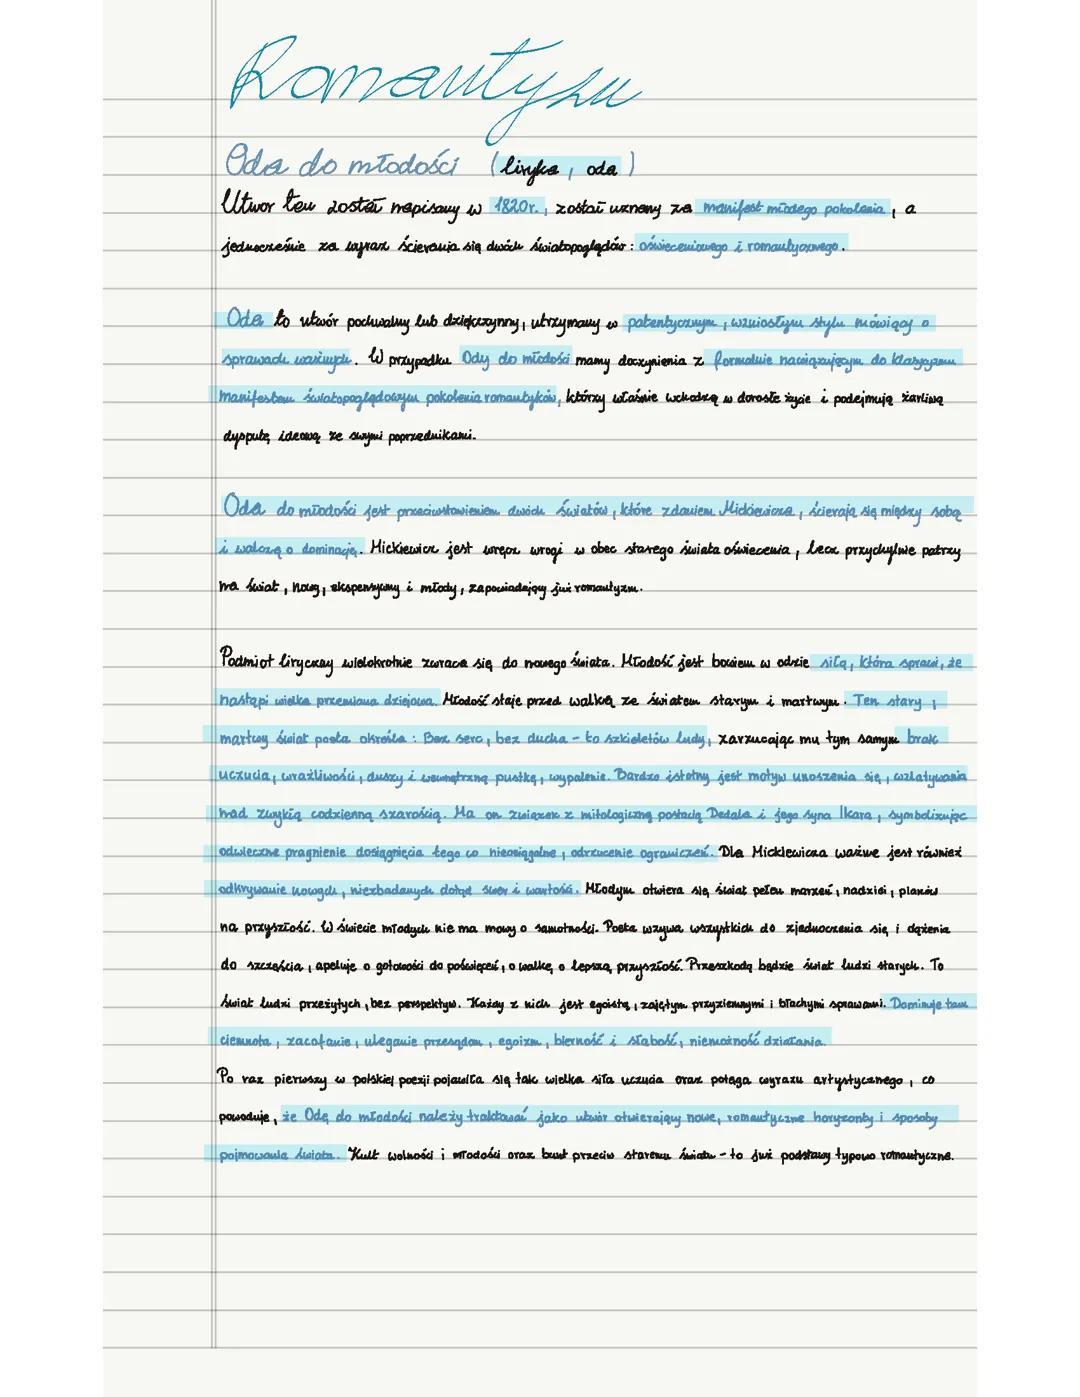 Romantyzm
Oda do młodości (liryka, oda)
Utwór ten został napisany w 1820r., został uznany za manifest młodego pokolenia, a
jednocześnie za wyraz ścierania się dwóch światopoglądów: oświeceniowego i romantycznego.
Oda to utwór pochwalny lub dziękczynny, utrzymany w patentycznym, wzniosłym stylu mówiący o
sprawach ważnych. W przypadku Ody do młodości mamy doczynienia z formalnie nawiązującym do klasycyzmu
manifestem światopoglądowym pokolenia romantyków, którzy właśnie wchodzą w dorosłe życie i podejmują żarliwą
dysputę ideową ze swymi poprzednikami.
Oda do młodości jest przeciwstawieniem dwóch światów, które zdaniem Mickiewicza, ścierają się między sobą
i walczą o dominację. Mickiewicz jest wręcz wrogi w obec starego świata oświecenia, lecz przychylnie patrzy
na świat, nowy, ekspensywny i młody, zapowiadający już romantyzm.
Podmiot liryczny wielokrotnie zwraca się do nowego świata. Młodość jest bowiem w odzie siłą, która sprawi, że
nastąpi wielka przemiana dziejowa. Młodość staje przed walką ze światem starym i martwym. Ten stary i
martwy świat poeta określa: Bez serc, bez ducha - to szkieletów ludy, zarzucając mu tym samym brak
uczucia, wrażliwości, duszy i wewnętrzną pustkę, wypalenie. Bardzo istotny jest motyw unoszenia się, wzlatywania
nad zwykłą codzienną szarością. Ma on związek z mitologiczną postacią Dedala i jego syna Ikara, symbolizując
odwieczne pragnienie dosięgnięcia tego co nieosiągalne, odrzucenie ograniczeń. Dla Mickiewicza ważne jest również
odkrywanie nowych, niezbadanych dotąd sfer i wartości. Młodym otwiera się świat pełen marzeń, nadziei, planów
na przyszłość. W świecie młodych nie ma mowy o samotności. Poeta wzywa wszystkich do zjednoczenia się i dążenia
do szczęścia, apeluje o gotowości do poświęceń, o walkę, o lepszą przyszłość. Przeszkodą będzie świat ludzi starych. To
świat ludzi przeżytych, bez perspektyw. Każdy z nich jest egoistą, zajętym przyziemnymi i błachymi sprawami. Dominuje tam
ciemnota, zacofanie, uleganie przesądom, egoizm, bierność i słabość, niemożność działania.
Po raz pierwszy w polskiej poezji pojawiła się tak wielka siła uczucia oraz potęga wyrazu artystycznego, co
powoduje, że Odę do młodości należy traktować jako utwór otwierający nowe, romantyczne horyzonty i sposoby
pojmowania świata. Kult wolności i młodości oraz bunt przeciw staremu światu - to już podstawy typowo romantyczne.